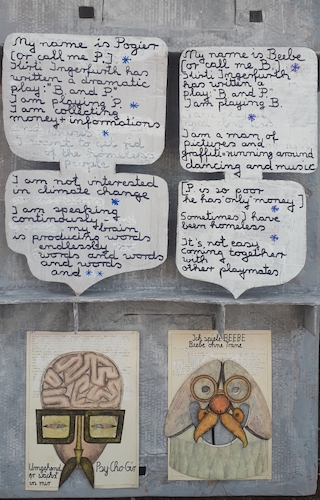 My name is Pogier
[or call me P.]
Stirli Ingerfurth has
written a dramatic
play: "B. and P."
I am playing P.
I am collecting
money + informations
I am not interested
in climate change
I am speaking
continously
my brain
is producing words
endlessly
words and words
and words
and
My name is Beebe
[or call me B.]
Stirli Ingerfurth
has written a
play: "B. and P."
I am playing B.
I am a man of
pictures and
graffiti - running around
dancing and music
[P. is so poor
he has only money]
Sometimes I have
been homeless
It's not easy
coming together
with
other playmates
Umgehend
in mir
Psy-Cho-Gir
Ich spiele BEEBE
Beebe ohne